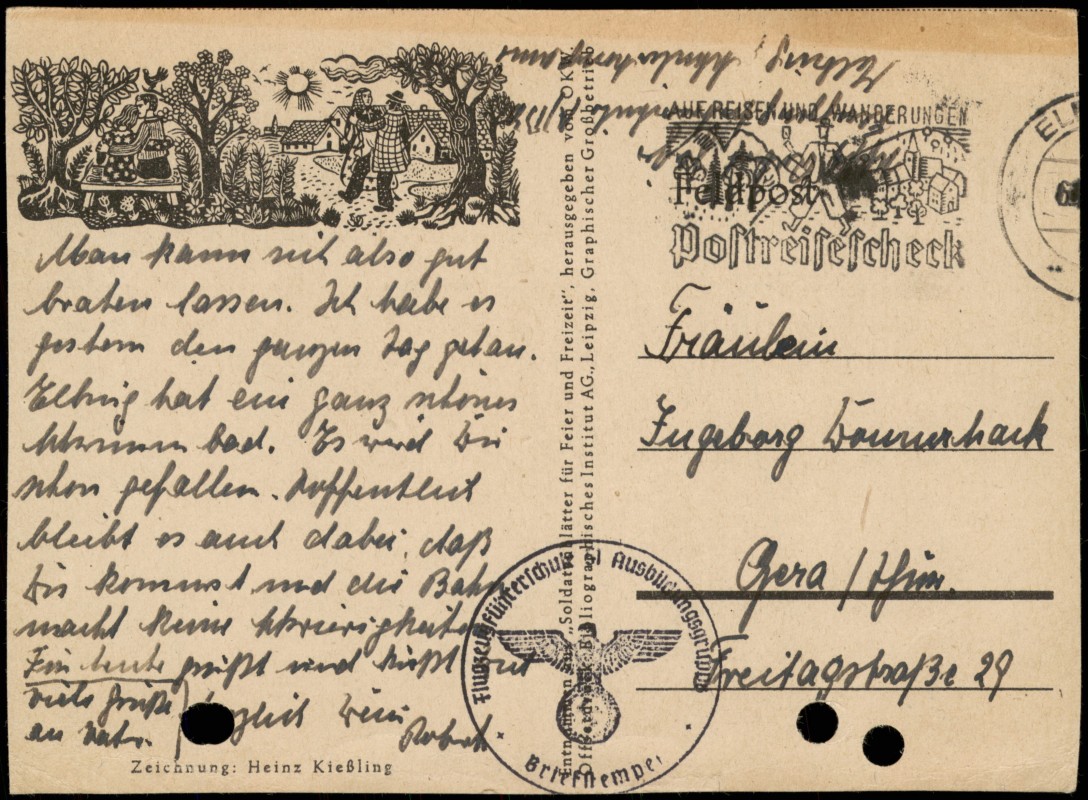 Man kann sich also gut
braten lassen. Ich habe es
gestern den ganzen Tag getan.
Elbing hat ein ganz schönes
Schwimmbad. Es wird Dir
schon gefallen. Hoffentlich
bleibt es auch dabei, daß
Du kommst und die Bahn
macht keine Schwierigkeiten
Für heute grüßt und küßt
viele Grüße herzlich Dein
an Vati. Robert
Zeichnung: Heinz Kießling
Entnommen aus „Soldatenblätter für Feier und Freizeit“, herausgegeben vom OKW.
Offsetdruck: Bibliographisches Institut AG., Leipzig, Graphischer Großbetrieb
AUF REISEN UND WANDERUNGEN
Postreisescheck
EL
Feldpost
Fräulein
Ingeborg
Gera / Thür.
Freitagstraße 29
Flugzeugführerschule Ausbildungsgruppe
Briefstempel